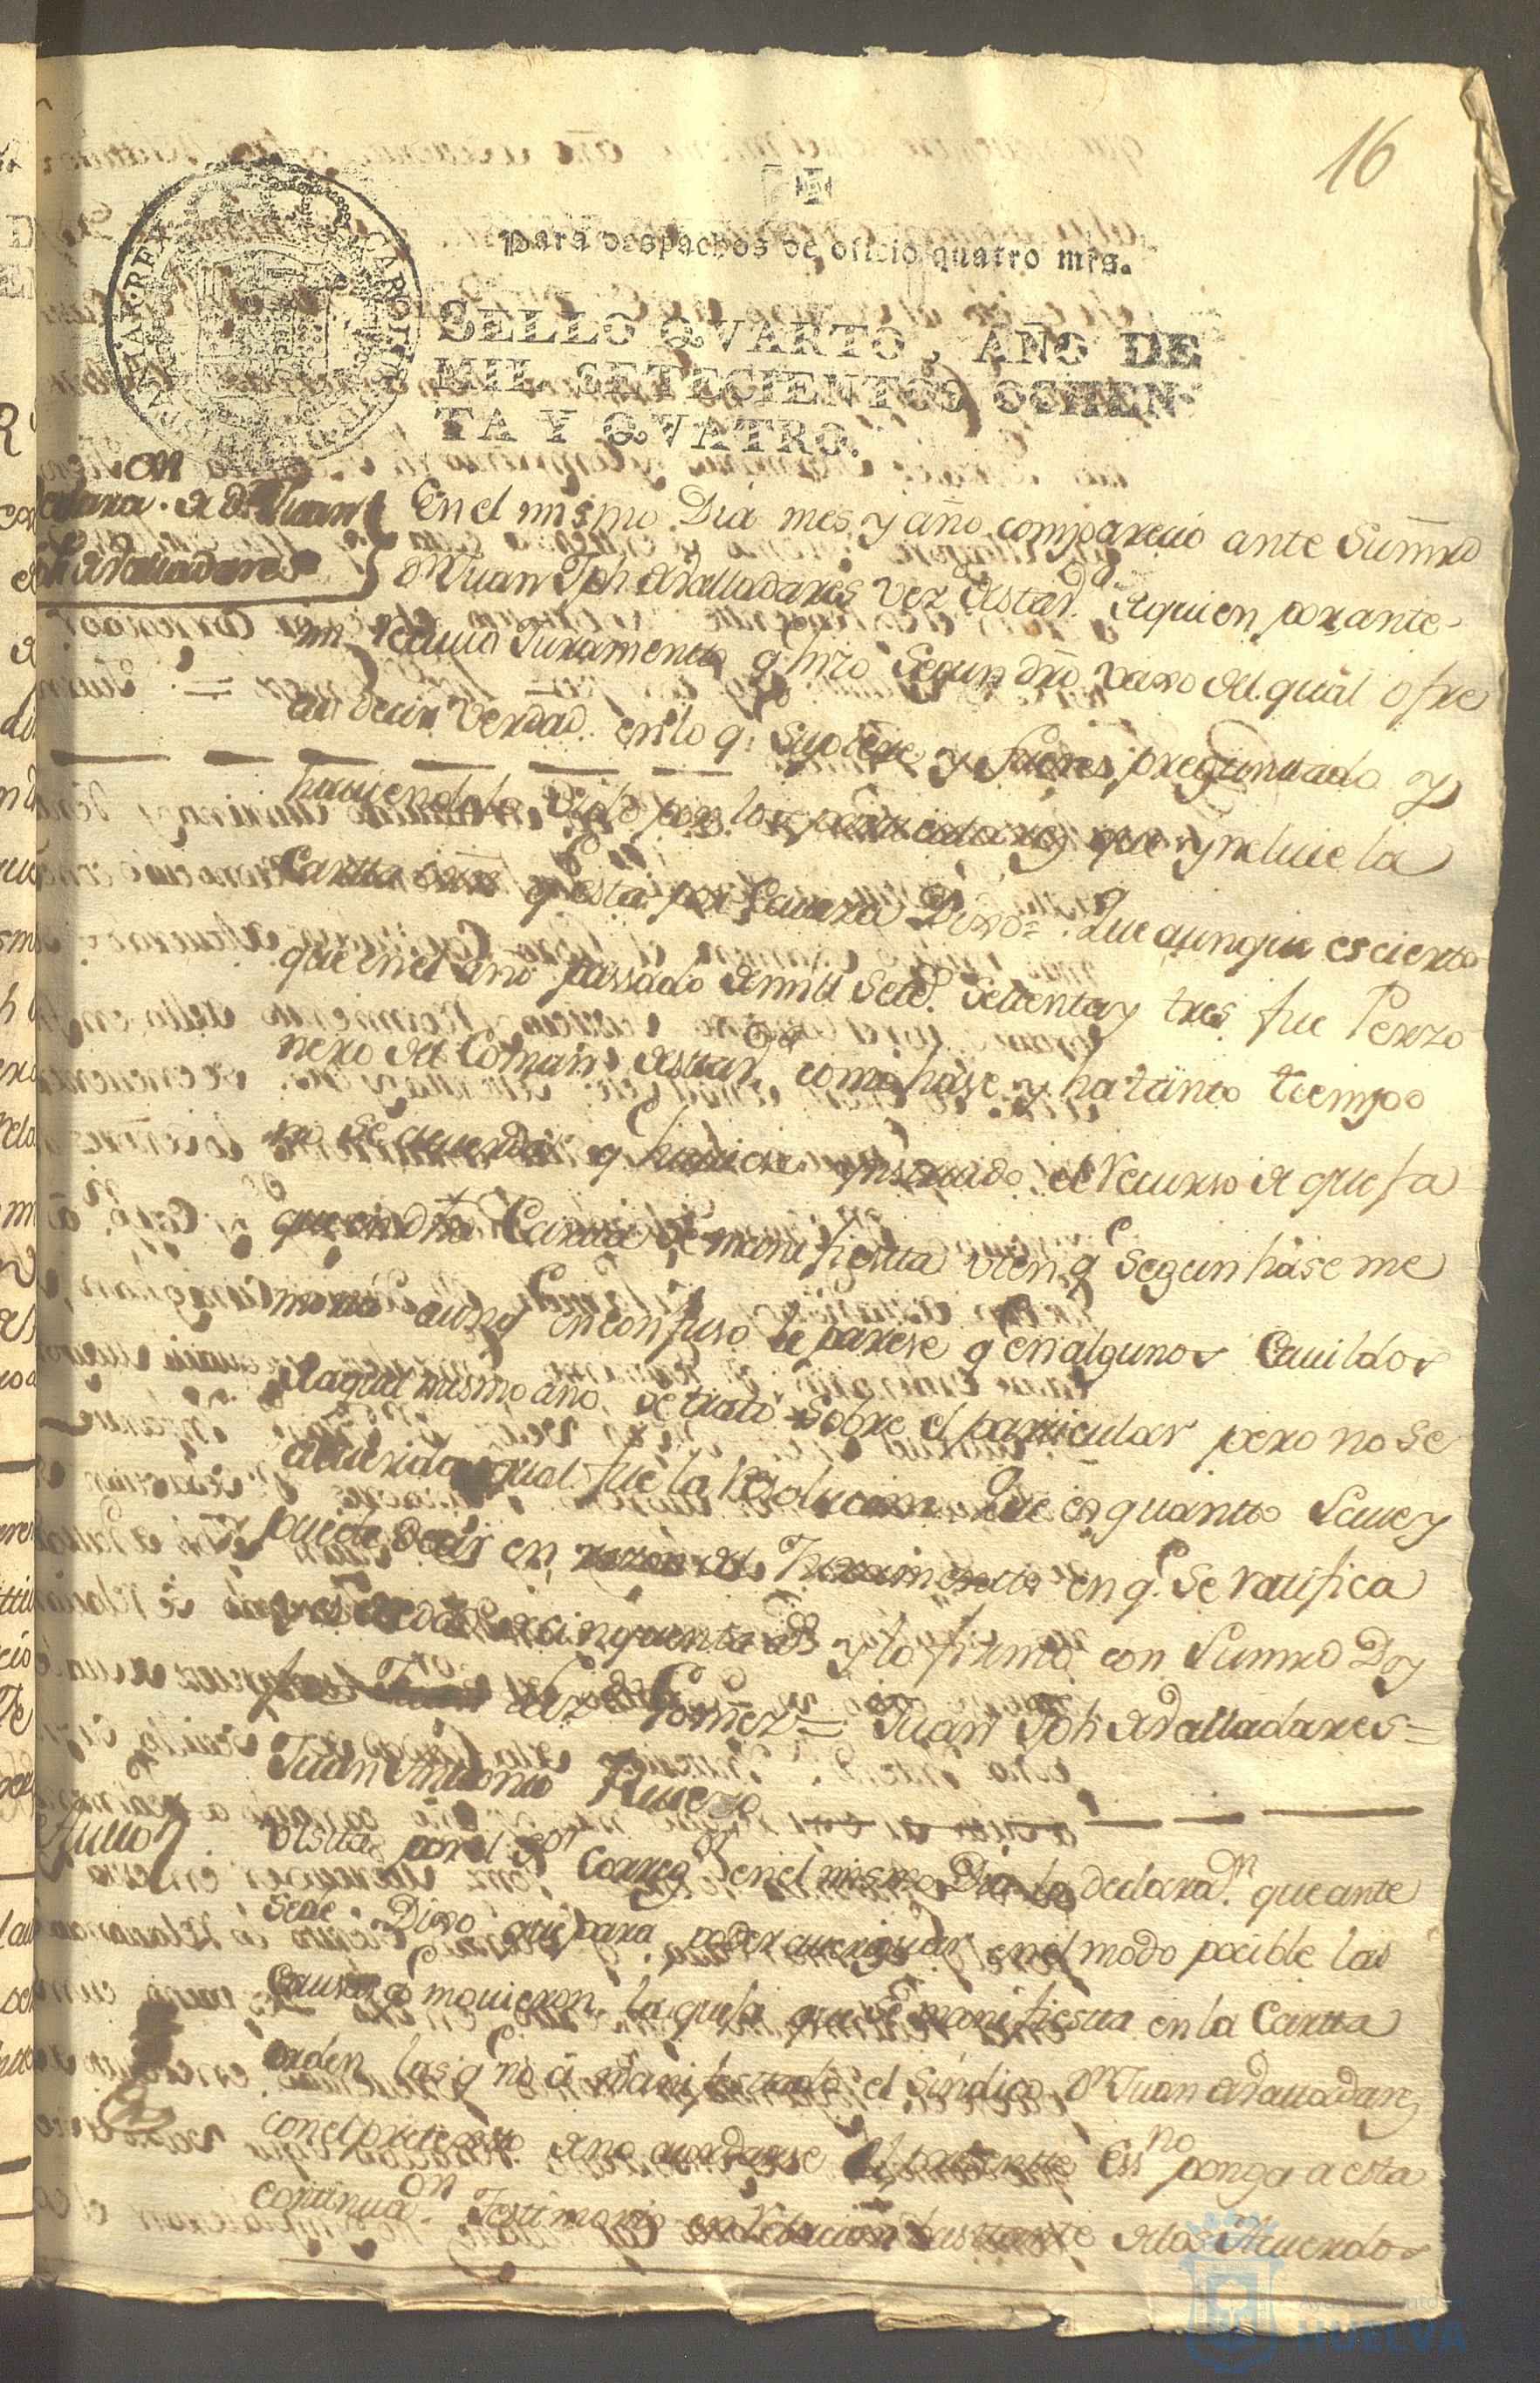 16
Para despachos de oficio quatro mrs.
SELLO QVARTO, AÑO DE
MIL SETECIENTOS OCHEN-
TA Y QVATRO.
CAROL
Declaraon. de dn Juan
Jph de Valladares
En el mismo Dia mes y año comparecio ante Sumrd
dn Juan Jph de Valladares vezo destad.a de quien por ante
mi recivio Juramento qe hizo segun dro vaxo del qual ofre
cio decir verdad en lo qe supiere y fuere preguntado y
haviendolo sido por los particulares que yncluie la
Cartta orn qe esta por Caveza Dixo= Que aunque es cierto
que en el año passado de mill setd. settenta y tres fue Perzo
nero del Comun desta como hase y ha tanto tiempo
no se acuerda qe huviese ynstruido el Recurso de que fa
que en dha Cartta se manifiesta vien qe segun hase me
moria aunqe en confuso le parese qe en algunos Cavildos
de aquel mismo año se trato sobre el particular pero no se
acuerda qual fue la Resolucion. Que es quantto save y
puede decir en razon del Juramentto en qe. se ratifica
es de edad de cinquenta as y lo firmo con Sumrd Doy
fee Gomez = Juan Jph de Valladares =
Juan Antonio
Autto
Vista por el Sor Corregor en el mismo Dia la declaraon. que ante
sede Dixo que para poder averiguar en el modo pocible las
Causas qe movieron la quefa que se manifiesta en la Cartta
orden las qe no á Manifestado el sindico dn Juan de Valladares
con el pretextto de no acordarse el presentte Essno ponga a esta
continuaon. Testimonio en Relacion bastante de los Acuerdos
Ayuntamiento de
HUELVA